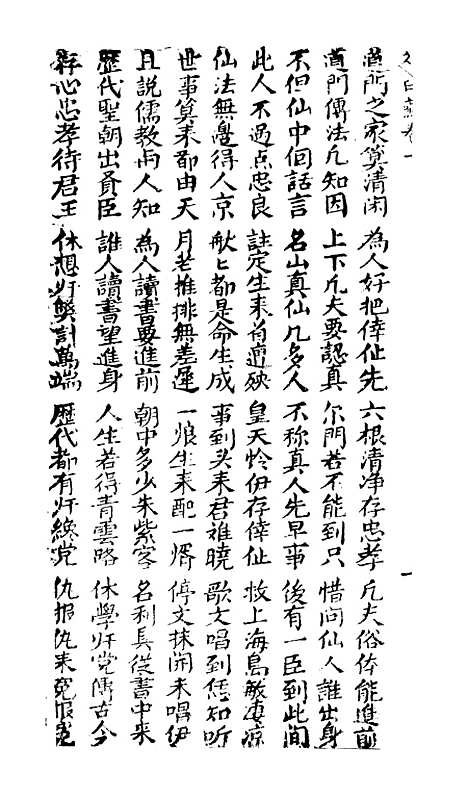 卷一
道門之家算清闲 為人好把倖仙先 六根清净存忠孝 凡夫俗体能進前
道門傳法凡知因 上下凡夫要認真 尔門若不能到只 惜问仙人誰出身
不但仙中佪話言 名山真仙几多人 不称真人先早事 後有一臣到此间
此人不過点忠良 註定生来有遭殃 皇天怜伊存倖仙 救上海島敝凄凉
仙法無邊得人京 般匕都是命生成 事到头来君谁晓 歌文唱到恁知听
世事算来都由天 月老推排無差遲 一娘生来配一婿 停文抹開来唱伊
且説儒教而人知 為人讀書要進前 朝中多少朱紫客 名利具從書中来
歷代聖朝出賢臣 誰人讀書望進身 人生若得青雲路 休學奸党傳古今
存心忠孝待君王 休想奸弊計萬端 歷代都有奸纔党 仇报仇来冤恨冤
一